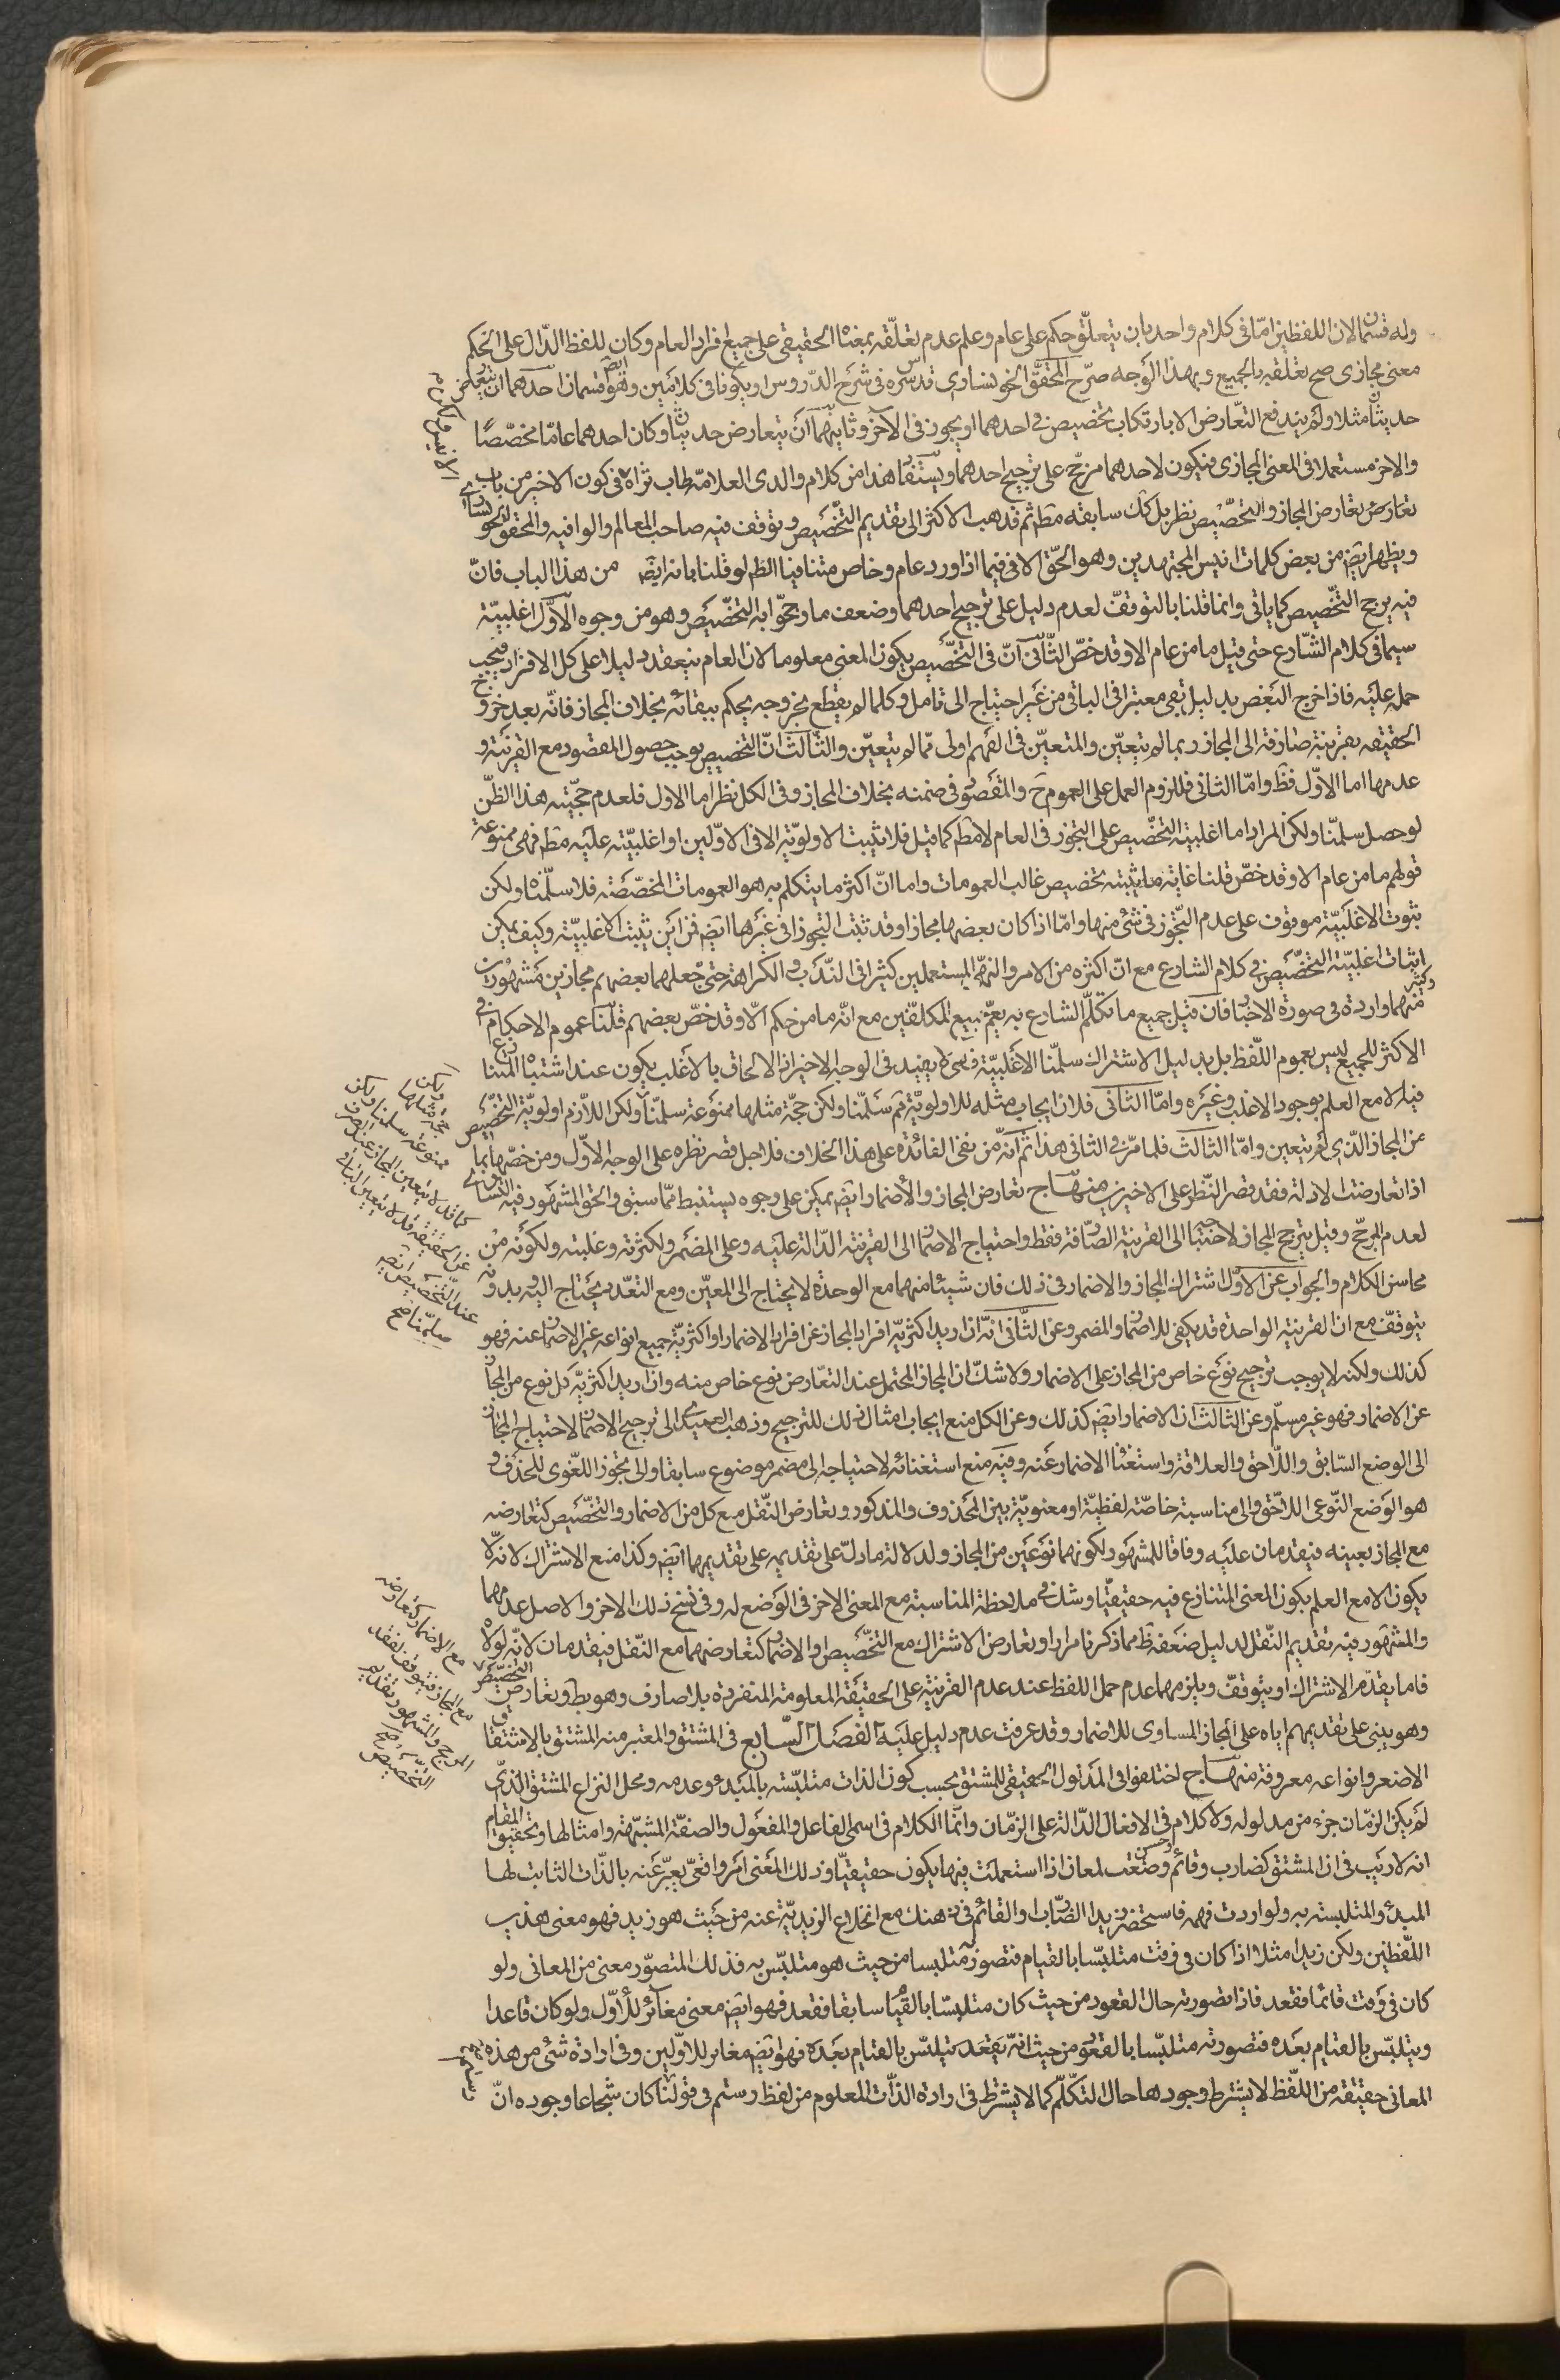 وله قسمان لان اللفظين امّا فى كلام واحد بان يتعلّق حكم على عام وعلم عدم تعلّقه بمعناه الحقيقى على جميع افراد العام وكان للفظ الدّال على الحكم
معنى مجازى صح تعلقه بالجميع وبهذا الوجه صرّح المحقّق الخوانسارى قدس سره فى شرح الدّروس او يكونا فى كلامين وهو ايضا قسمان احدهما ان يتعارض
حديثان مثلا ولم يندفع التعّارض الا بارتكاب تخصيص فى احدهما او تجوز فى الآخر وثانيهما ان يتعارض حديثان وكان احدهما عامّا مخصّصًا
والاخر مستعملا فى المعنى المجازى فيكون لاحدهما مرجّح على ترجيح احدهما ويستفاد هذا من كلام والدى العلامة طاب ثراه فى كون الاخير من باب
تعارض المجاز والتخصّيص نظر بل كك سابقه مطم ثم قد هب الاكثر الى تقديم التخّصيص وتوقف فيه صاحب المعالم والوافيه والمحقق الخوانسارى
ويظهر ايضم من بعض كلمات انيس المجتهدين وهو الحّق الا فى فيما اذا ورد عام وخاص متنافيا الظم لو قلنا بانه ايضم من هذا الباب فانّ
فيه يرجح التخّصيص كما ياتى وانما قلنا بالتوقفّ لعدم دليل على ترجيح احدهما وضعف ما رجحّوا به التخّصيص وهو من وجوه الاوّل اغلبيّته
سيما فى كلام الشّارع حتى قيل ما من عام الا وقد خصّ الثّانى انّ فى التخّصيص يكون المعنى معلوما لان العام ينعقد دليلا على كل الافراد فيجب
حمله عليه فاذا خرج البعض بدليل بقى معتبرا فى الباقى من غير احتياج الى تامل وكلما لم يقطع بخروجه يحكم ببقائه بخلاف المجاز فانّه بعد خروج
الحقيقه بقرينة صارفة الى المجاز ربما لم يتعيّن والمتعيّن فى الفهم اولى ممّا لم يتعيّن والثّالث انّ التخصيص يوجب حصول المقصود مع القرينة و
عدمها اما الاوّل فظّ وامّا الثانى فللزوم العمل على العموم ح والمقصود فى ضمنه بخلاف المجاز وفى الكل نظر اما الاول فلعدم حجّيته هذا الظنّ
لو حصل سلمنّا ولكن المراد اما اغلبية التخّصيص على التجوز فى العام لا مطم كما قيل فلا تثبت الاولويّة الا فى الاوّلين او اغلبيّته عليه مطم فهى ممنوعة
قولهم ما من عام الا وقد خصّ قلنا غاية ما يثبته تخصيص غالب العمومات واما انّ اكثر ما يتكلم به هو العمومات المخصّصة فلا سلّمناه ولكن
ثبوت الاغلبيّة موقوف على عدم التّجوز فى شئ منها وامّا اذا كان بعضها مجازا وقد ثبت التجوز فى غيرها ايضم فمن اين يثبت الاغلبيّة وكيف يمكن
اثبات اغلبيّة التخّصيص فى كلام الشارع مع انّ اكثره من الامر والنهى المستعملين كثيرا فى النّدب والكراهة حتى جعلهما بعضهم مجازين مشهورين
وكثير منهما واردة فى صورة الاخبار فان قيل جميع ما تكلّم الشارع به يعمّ جميع المكلفّين مع انّه ما من حكم الّا وقد خصّ ببعضهم قلنا عموم الاحكام فى
الاكثر للجميع ليس بعموم اللّفظ بل بدليل الاشتراك سلمنّا الاغلبيّة فهى لا يفيد فى الوجه الاخير اذ الالحاق بالاغلب يكون عند اشتباه المتنازع
فيه لا مع العلم بوجود الاغلب وغيره وامّا الثّانى فلان ايجاب مثله للاولويّة ثم سلّمنا ولكن حجّة مثلها ممنوعة سلمنّا ولكن اللاّزم اولويّة التخّصيص
من المجاز الّذى لم يتعين وامّا الثالث فلما مرّ فى الثانى هذا ثم انّه من نفى الفائدة على هذا الخلاف فلاجل قصر نظره على الوجه الاوّل ومن خصّها بما
اذا تعارضت الادلة فقد قصر النّظر على الاخيرين منهاج تعارض المجاز والاضمار ايضم يمكن على وجوه يستنبط ممّا سبق والحق المشهور فيه التساوى
لعدم المرجّح وقيل يترجح المجاز لاحتياجه الى القرينة الصّارفة فقط واحتياج الاضمار الى القرينة الدّالة عليه وعلى المضمر ولكثرته وغلبته ولكونه من
محاسن الكلام والجواب عن الاوّل اشتراك المجاز والاضمار فى ذلك فان شيئا منهما مع الوحدة لا يحتاج الى المعيّن ومع التعّدد يحتاج اليه وبدونه
يتوقفّ مع ان القرينة الواحدة قد يكفى للاضمار والمضمر وعن الثّانى انّه ان اريد اكثريّة افراد المجاز عن افراد الاضمار او اكثريّة جميع انواعه غير الاضمار عنه فهو
كذلك ولكنه لا يوجب ترجيح نوع خاص من المجاز على الاضمار ولا شكّ ان المجاز المحتمل عند التعّارض نوع خاص منه وان اريد اكثريّة كل نوع من المجاز
عن الاضمار فهو غير مسلّم وعن الثالث ان الاضمار ايضم كذلك وعن الكل منع ايجاب امثال ذلك للترجيح وذهب العميدى الى ترجيح الاضمار لاحتياج المجاز
الى الوضع السّابق واللّاحق والعلاقة واستغناء الاضمار عنه وفيه منع استغنائه لاحتياجه الى مضمر موضوع سابقا والى تجوز اللّغوى للحذف و
هو الوضع النّوعى اللّاحق والى مناسبة خاصّة لفظيّة او معنويّة بين المحذوف والمذكور وتعارض النّقل مع كل من الاضمار والتخّصيص كتعارضه
مع المجاز بعينه فيقدمان عليه وفاقا للمشهور لكونهما نوعين من المجاز ولدلالة ما دلّ على تقديمه على تقديمهما ايضم وكذا مع الاشتراك لانّه لا
يكون الا مع العلم بكون المعنى المتنازع فيه حقيقيّا وشك فى ملاحظة المناسبة مع المعنى الاخر فى الوضع له وفى نسخ ذلك الاخر والاصل عدمهما
والمشهور فيه تقديم النّقل لدليل ضعفه ظ مما ذكرنا مرارا وتعارض الاشتراك مع التخّصيص او الاضمار كتعارضهما مع النّقل فيقدمان لانّه لولاه
فاما يقدّم الاشتراك او يتوقفّ ويلزمهما عدم حمل اللفظ عند عدم القرينة على الحقيقة المعلومة المنفردة بلا صارف وهو بط وتعارض التخصيص
وهو يبنى على تقديمهم اياه على المجاز المساوى للاضمار وقد عرفت عدم دليل عليه الفصل السّابع فى المشتق والمعتبر منه المشتق بالاشتقاق
الاصغر وانواعه معروفة منهاج اختلفوا فى المدلول الحقيقى للمشتق بحسب كون الذات متلبّسة بالمبدء وعدمه ومحل النزاع المشتق الذى
لم يكن الزمّان جزء من مدلوله ولا كلام فى الافعال الدّالة على الزمّان وانّما الكلام فى اسمى الفاعل والمفعول والصفّة المشبّهة وامثالها وتحقيق المقام
انه لا ريب فى ان المشتق كضارب وقائم وحسن وضعت لمعان اذا استعملت فيها يكون حقيقيّا وذلك المعنى امر واقعىّ يعبّر عنه بالذّات الثابت لها
المبدء والمتلبسة به ولو اردت فهمه فاستحضر زيدا الضّارب او القائم فى ذهنك مع انخلاع الزيديّة عنه من حيث هو زيد فهو معنى هذين
اللّفظين ولكن زيدا مثلا اذا كان فى وقت متلبّسا بالقيام فتصوره متلبسا من حيث هو متلبّس به فذلك المتصوّر معنى من المعانى ولو
كان فى وقت قائما فقعد فاذا تصورته حال القعود من حيث كان متلبسّا بالقيام سابقا فقعد فهو ايضم معنى مغاير للاوّل ولو كان قاعدا
ويتلبّس بالقيام بعده فتصورته متلبّسا بالقعود من حيث انّه يقعد يتلبّس بالقيام بعده فهو ايضم مغاير للاوّلين وفى ارادة شئ من هذه
المعانى حقيقة من اللّفظ لا يشترط وجودها حال التكّلم كما لا يشترط فى ارادة الذّات المعلوم من لفظ رستم فى قولنا كان شجاعا وجوده انّ
ولكن
حجّة مثلها
ممنوعة سلمنا ولكن
كما قد لا يتعين المجاز عند الصرف
عن الحقيقة قد لا يتعين الباقى
عند التخصيص ايضم
سلمنا صح
مع الاضمار كتعارضه
مع المجاز فيتوقف لفقد
المرجح والمشهور تقديم
التخّصيص
رستم